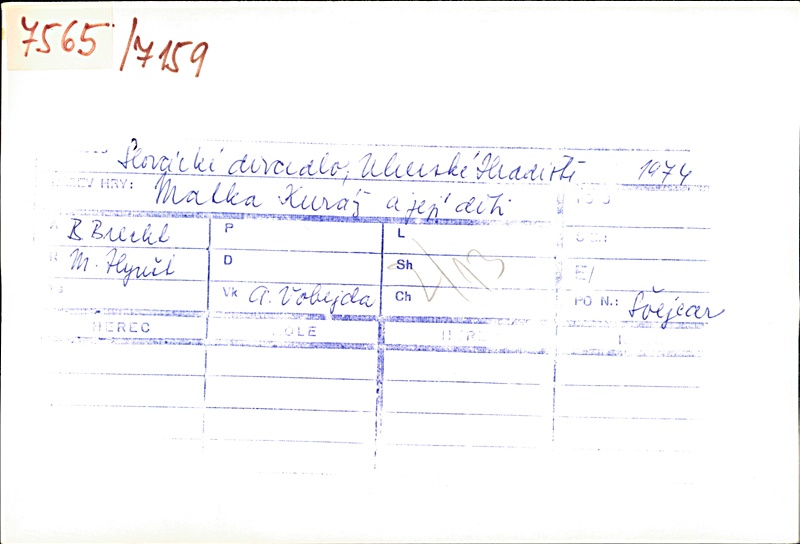 7565 /7159
Slovácké divadlo, Uherské Hradiště 1974
HRY: Matka Kuráž a její děti
B Brecht P L
M. Hynšt D Sh E/
Vk A. Vobejda Ch PO N.: Švejcar
HEREC